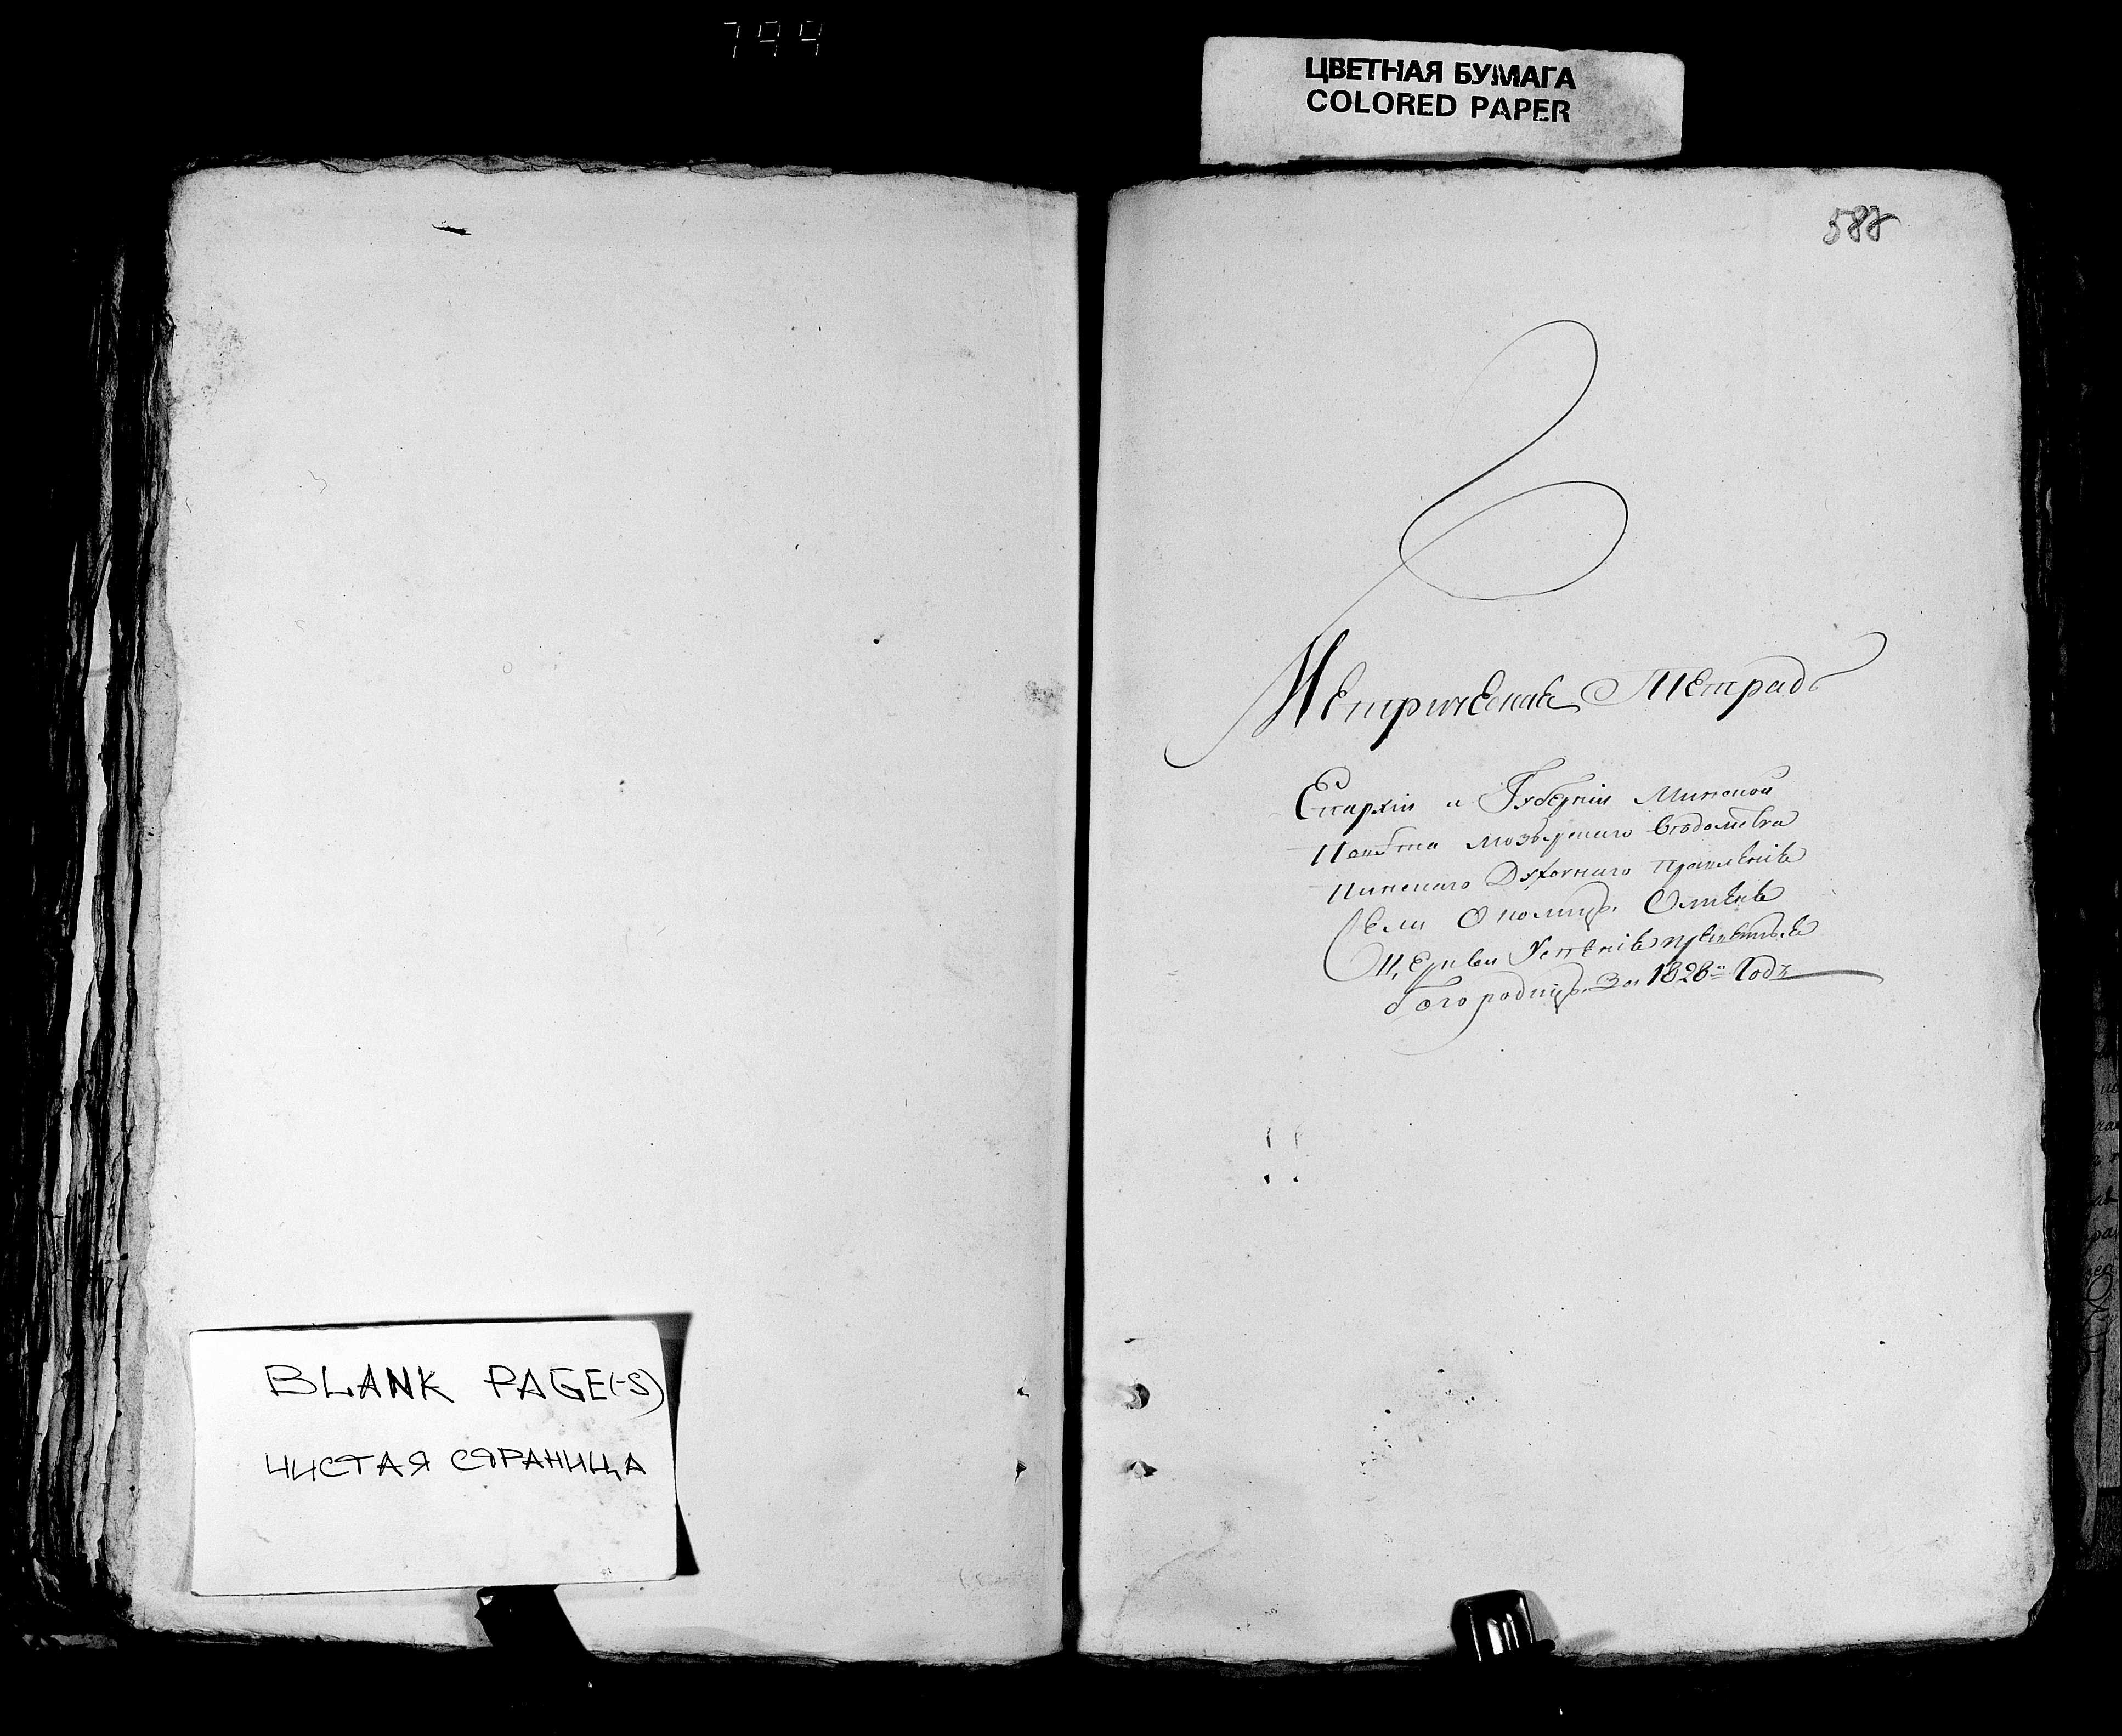 799
ЦВЕТНАЯ БУМАГА
COLORED PAPER
588
Метрическая Тетрадь
Епархіи и Губерніи Минской
Повѣта мозырскаго вѣдомства
пинскаго Духовнаго правленія
Села
Церкви Успенія пресвятыя
богородицы За 1828 Годъ
BLANK PAGE(-S)
ЧИСТАЯ СТРАНИЦА